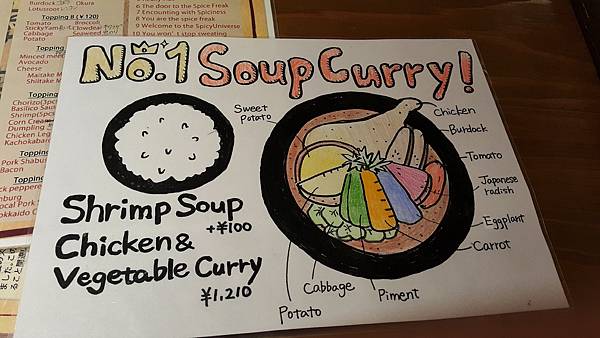 Burdock
Okura
Lotusroot
Topping B (¥120)
Tomato
Broccoli
StickyYam
Cabbage
Seaweed
Topping
Minced meet
Avocado
Cheese
Maitake M
Shiitake M
Topping
Chorizo(3pc
Basilico Sau
Shrimp(5pc
Corn Cream
Dumpling
Chicken Leg
Kachokaban
Topping
Pork Shabu
Bacon
6 The door to the Spice freak
7 Encounting with Spiciness
8 You are the spice freak
9 Welcome to the SpicyUniverse
10 You won't stop sweating
No.1 Soup Curry!
Sweet
Potato
Chicken
Burdock
Tomato
Japanese
radish
Eggplant
Carrot
Piment
Cabbage
Potato
Shrimp Soup
+¥100
Chicken &
Vegetable Curry
¥1,210